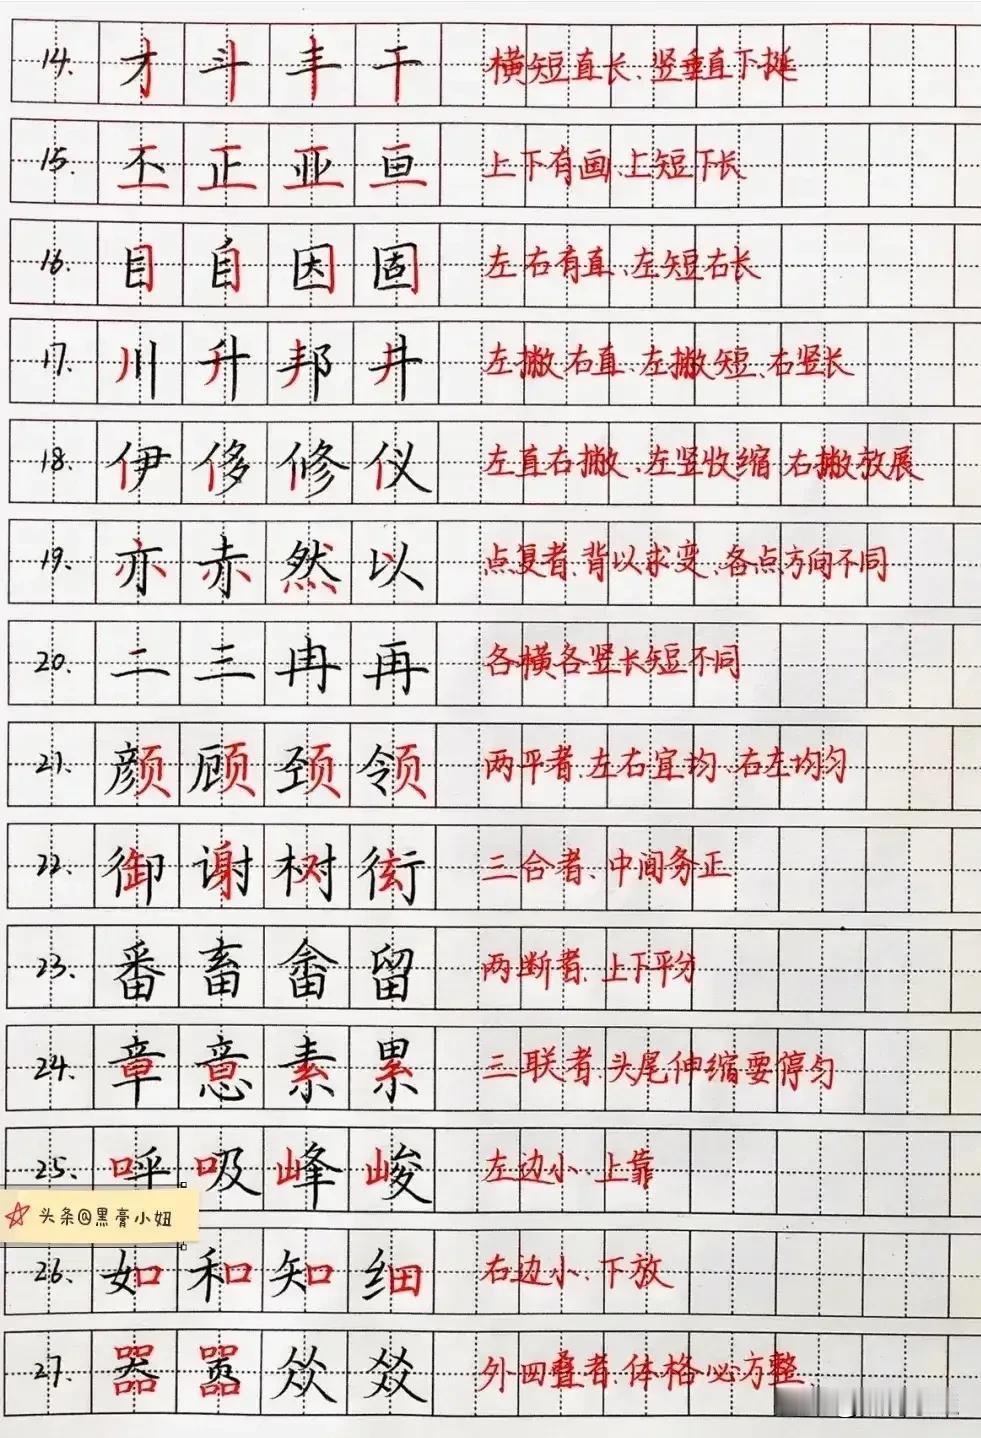 14. 才 斗 丰 干 横短直长、竖垂直下挺
15. 丕 正 亚 亘 上下有画、上短下长
16. 目 自 因 固 左右有直、左短右长
17. 川 升 邦 井 左撇右直、左撇短、右竖长
18. 伊 侈 修 仪 左直右撇、左竖收缩 右撇放展
19. 亦 赤 然 以 点复者、背以求变、各点方向不同
20. 二 三 冉 再 各横各竖长短不同
21. 颜 顾 颈 领 两平者、左右宜均、右左均匀
22. 御 谢 树 衔 三合者、中间务正
23. 番 畜 畲 留 两断者、上下平分
24. 章 意 素 累 三联者、头尾伸缩要停匀
25. 呼 吸 峰 峻 左边小、上靠
头条@黑膏小妞
26. 如 和 知 细 右边小、下放
27. 器 嚣 㸚 叕 外四叠者、体格必方整